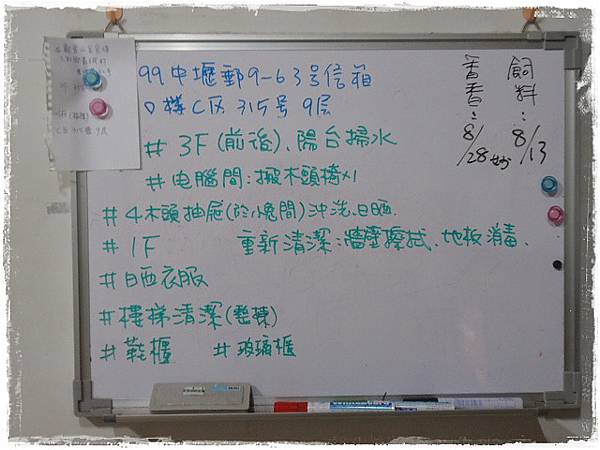 99中壢郵9-63号信箱
D棟C区315号9层
# 3F(前後)、陽台掃水
#电腦間:搬木頭椅x1
#4木頭抽屜(於小傀間)沖洗、日晒.
#1F 重新清潔:牆壁擦拭、地板消毒.
#晒衣服
#樓梯清潔(整棟)
#鞋櫃 #玻璃櫃
飼料:8/13
香香:8/28
C区315号9层